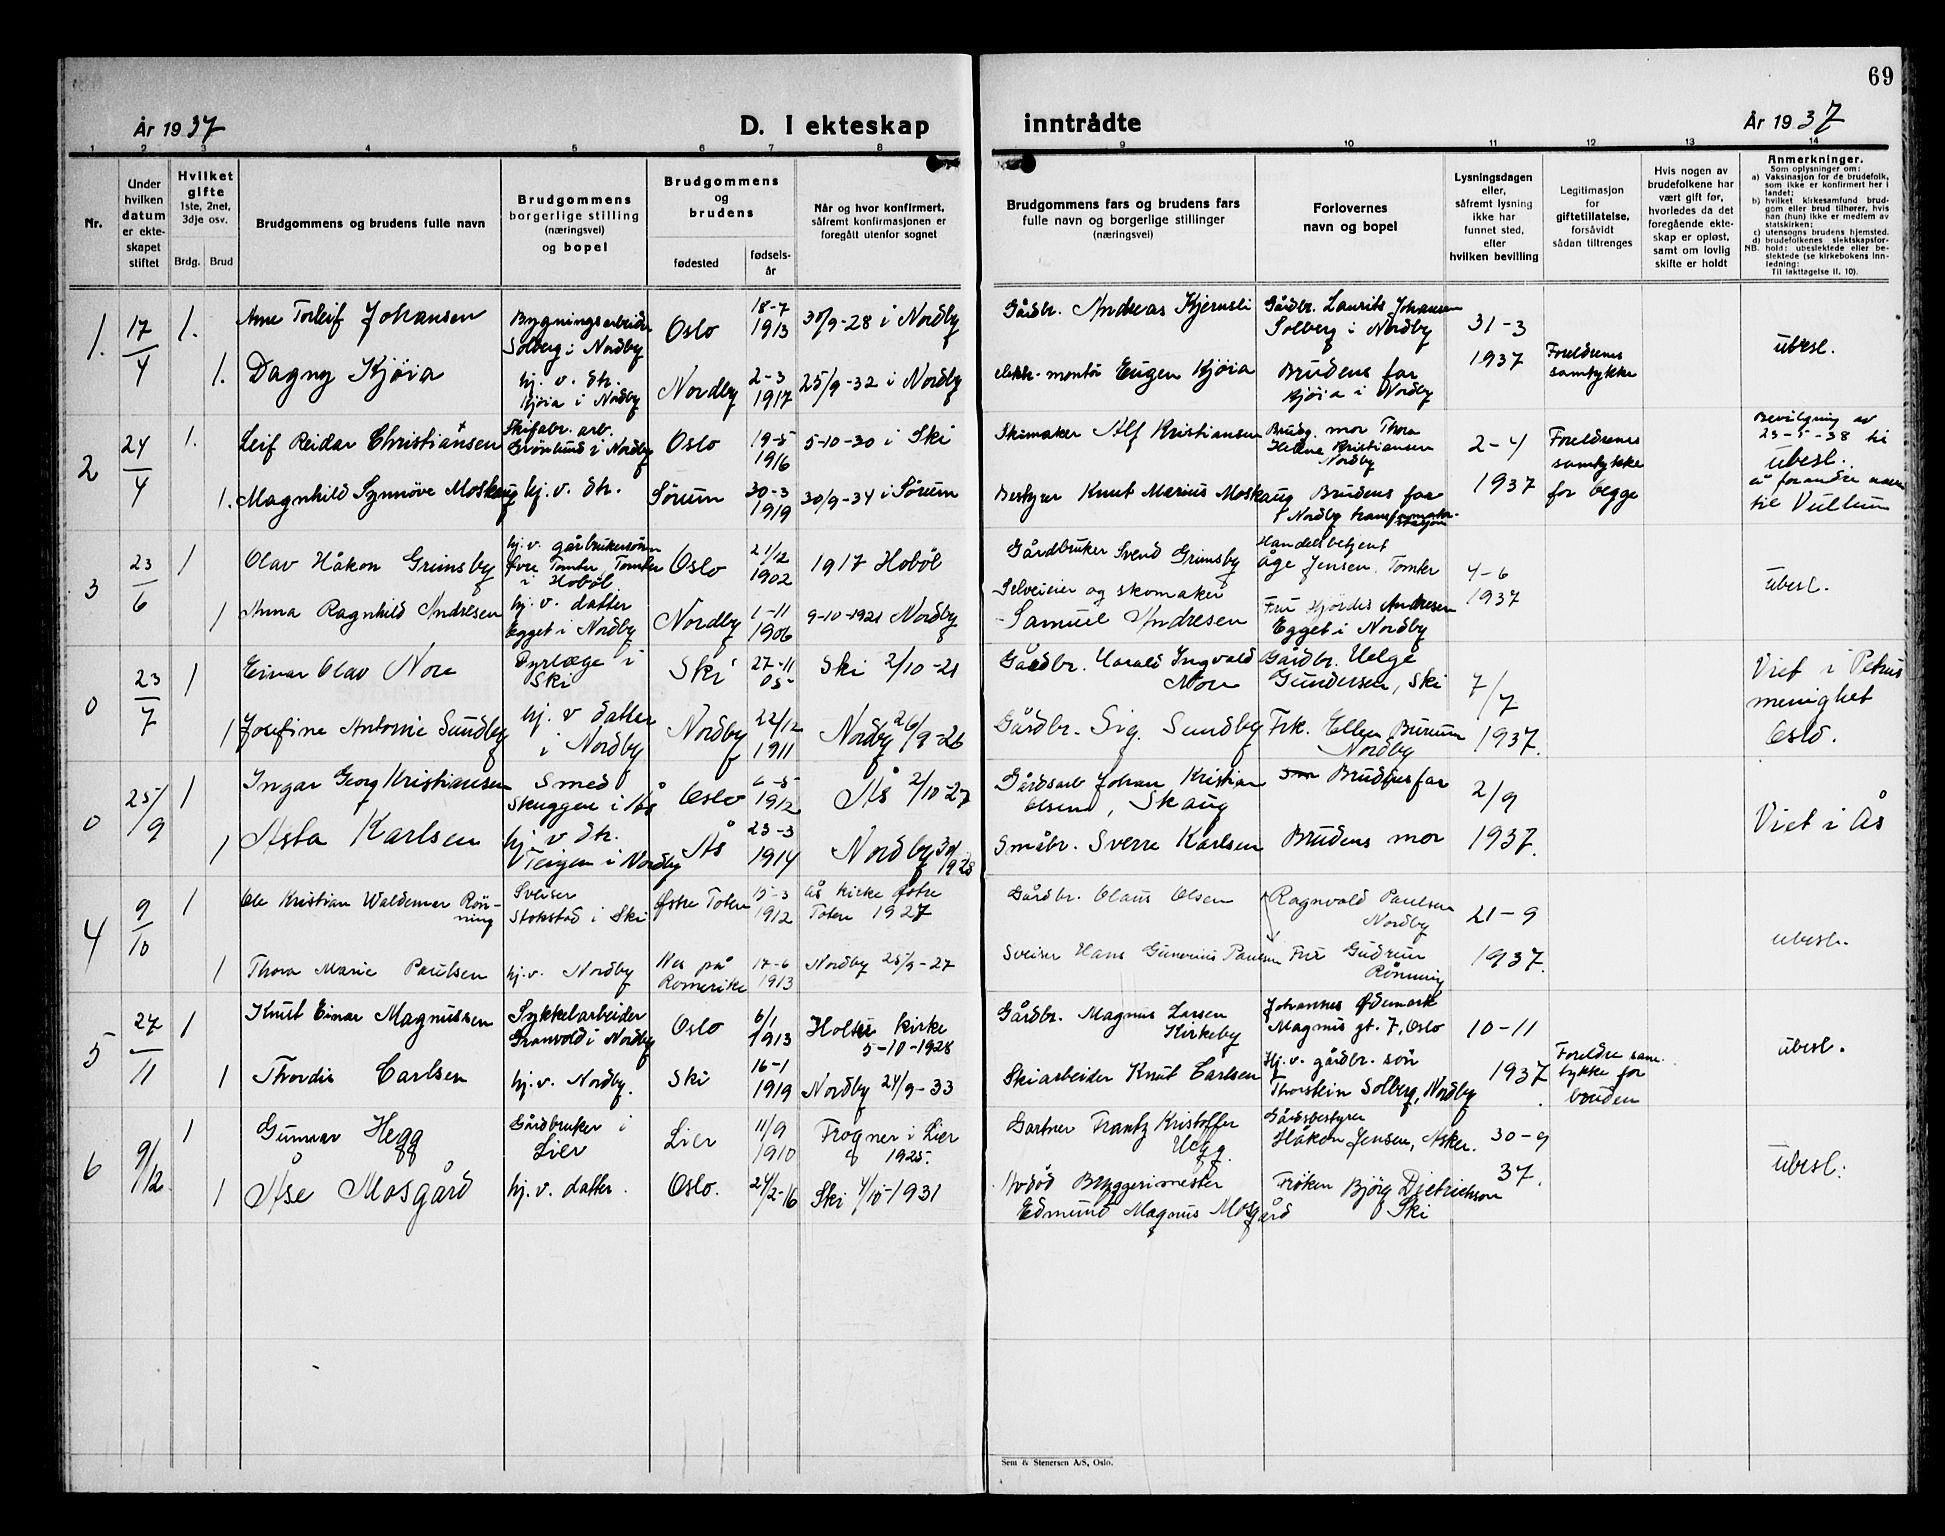 69
År 1937
D. I ekteskap inntrådte
År 1937
1 2 3 4 5 6 7 8 9 10 11 12 13 14
Nr.
Under hvilken datum er ekteskapet stiftet
Hvilket gifte
1ste, 2net, 3dje osv.
Brdg. Brud
Brudgommens og brudens fulle navn
Brudgommens
borgerlige stilling
(næringsvei)
og bopel
Brudgommens
og
brudens
fødested
fødselsår
Når og hvor konfirmert,
såfremt konfirmasjonen er
foregått utenfor sognet
Brudgommens fars og brudens fars
fulle navn og borgerlige stillinger
(næringsvei)
Forlovernes
navn og bopel
Lysningsdagen
eller,
såfremt lysning
ikke har
funnet sted,
efter
hvilken bevilling
Legitimasjon
for
giftetillatelse,
forsåvidt
sådan tiltrenges
Hvis nogen av
brudefolkene har
vært gift før,
hvorledes da det
foregående ekte-
skap er opløst,
samt om lovlig
skifte er holdt
Anmerkninger.
Som oplysninger om:
a) Vaksinasjon for de brudefolk,
som ikke er konfirmert her i
landet;
b) hvilket kirkesamfund brud-
gom eller brud tilhører, hvis
han (hun) ikke er medlem av
statskirken;
c) utensogns brudens hjemsted.
d) brudefolkenes slektskapsfor-
hold: ubeslektede eller be-
slektede (se kirkebokens inn-
ledning:
NB.
Til iakttagelse II. 10).
1. 17/4 1. Arne Torleif Johansen Bygningsarbeider Solberg i Nordby Oslo 18-7 1913 30/9-28 i Nordby Gårdbr. Andreas Kjernsli Gårdbr. Laurits Johansen Solberg i Nordby 31-3 1937 Foreldrenes samtykke ubesl.
1. Dagny Kjøia hj. v. dtr. Kjøia i Nordby Nordby 2-3 1917 25/9-32 i Nordby elektr. montör Eugen Kjøia Brudens far Kjøia i Nordby
2 24/4 1. Leif Reidar Christiansen Skifabr. arb. Grønlund i Nordby Oslo 19-5 1916 5-10-30 i Ski Skomaker Alf Kristiansen Brudg. mor Thora Helene Kristiansen Nordby 2-4 1937 Foreldrenes samtykke for begge Bevilgning av 23-5-38 til ubesl. å forandre navn til Vullum
1. Magnhild Synnöve Moskaug hj. v. dtr. Sørum 30-3 1919 30/9-34 i Sørum Bestyrer Knut Marius Moskaug Brudens far Nordby transformatorstasjon
3 23/6 1 Olav Håkon Grimsby hj. v. gårbrukersönn Øvre Tomter, Tomter i Hobøl Oslo 21/12 1902 1917 Hoböl Gårdbruker Svend Grimsby Handelsbetjent Åge Jensen, Tomter 4-6 1937 ubesl.
1 Anna Ragnhild Andresen hj. v. datter Egget i Nordby Nordby 1-11 1906 9-10-1921 Nordby Selveier og skomaker Samuel Andresen Fru Hjördis Andresen Egget i Nordby
0 23/7 1 Einar Olav Nore Dyrlæge i Ski Ski 27-11 05 Ski 2/10-21 Gårdbr. Harald Ingvald Nore Gårdbr. Helge Gundersen, Ski 7/7 1937. Viet i Petrus menighet Oslo.
1 Josefine Antonie Sundby hj. v datter i Nordby Nordby 22/12 1911 Nordby 26/9-26 Gårdbr. Sig. Sundby Frk. Ellen Burum Nordby
0 25/9 1 Ingar Georg Kristiansen Smed Skuggen i Ås Oslo 6-5 1912 Ås 2/10-27 Gårdsarb Johan Kristian Olsen, Skaug Brudens far 2/9 1937. Viet i Ås
1 Asta Karlsen hj. v dtr. Teigen i Nordby Ås 23-3 1914 Nordby 30/9 1928 Småbr. Sverre Karlsen Brudens mor
4 9/10 1 Ole Kristian Waldemar Rönning Sveiser Stokstad i Ski Østre Toten 15-3 1912 Ås kirke Østre Toten 1927 Gårdbr. Olaus Olsen Ragnvald Paulsen Nordby 21-9 1937. ubesl.
1 Thora Marie Paulsen hj. v. Nordby Nes på Romerike 17-6 1913 Nordby 25/9-27 Sveiser Hans Gunerius Paulsen Fru Gudrun Rönning
5 27/11 1 Knut Einar Magnussen Sykkelarbeider Granvold i Nordby Oslo 6/1 1913 Holter kirke 5-10-1928 Gårdbr. Magnus Larsen Kirkeby Johannes Ødemark Magnus gt. 7, Oslo 10-11 1937. Foreldre samtykke for bruden ubesl.
1 Thordis Carlsen hj. v. Nordby. Ski 16-1 1919 Nordby 24/9-33 Skiarbeider Knut Carlsen Hj. v. gårdbr. sön Thorstein Solberg, Nordby
6 9/12. 1 Gunnar Hegg Gårdbruker i Lier Lier 11/9 1910 Frogner i Lier 1925. Gartner Frantz Kristoffer Hegg. Gårdsbestyrer Håkon Jensen, Asker. 30-9 37. ubesl.
1 Åse Mosgård hj. v. datter. Oslo. 24/2-16 Ski 4/10-1931 Avdöd Bryggerimester Edmund Magnus Mosgård Fröken Björg Dietrichson Ski
Sem & Stenersen A/S, Oslo.